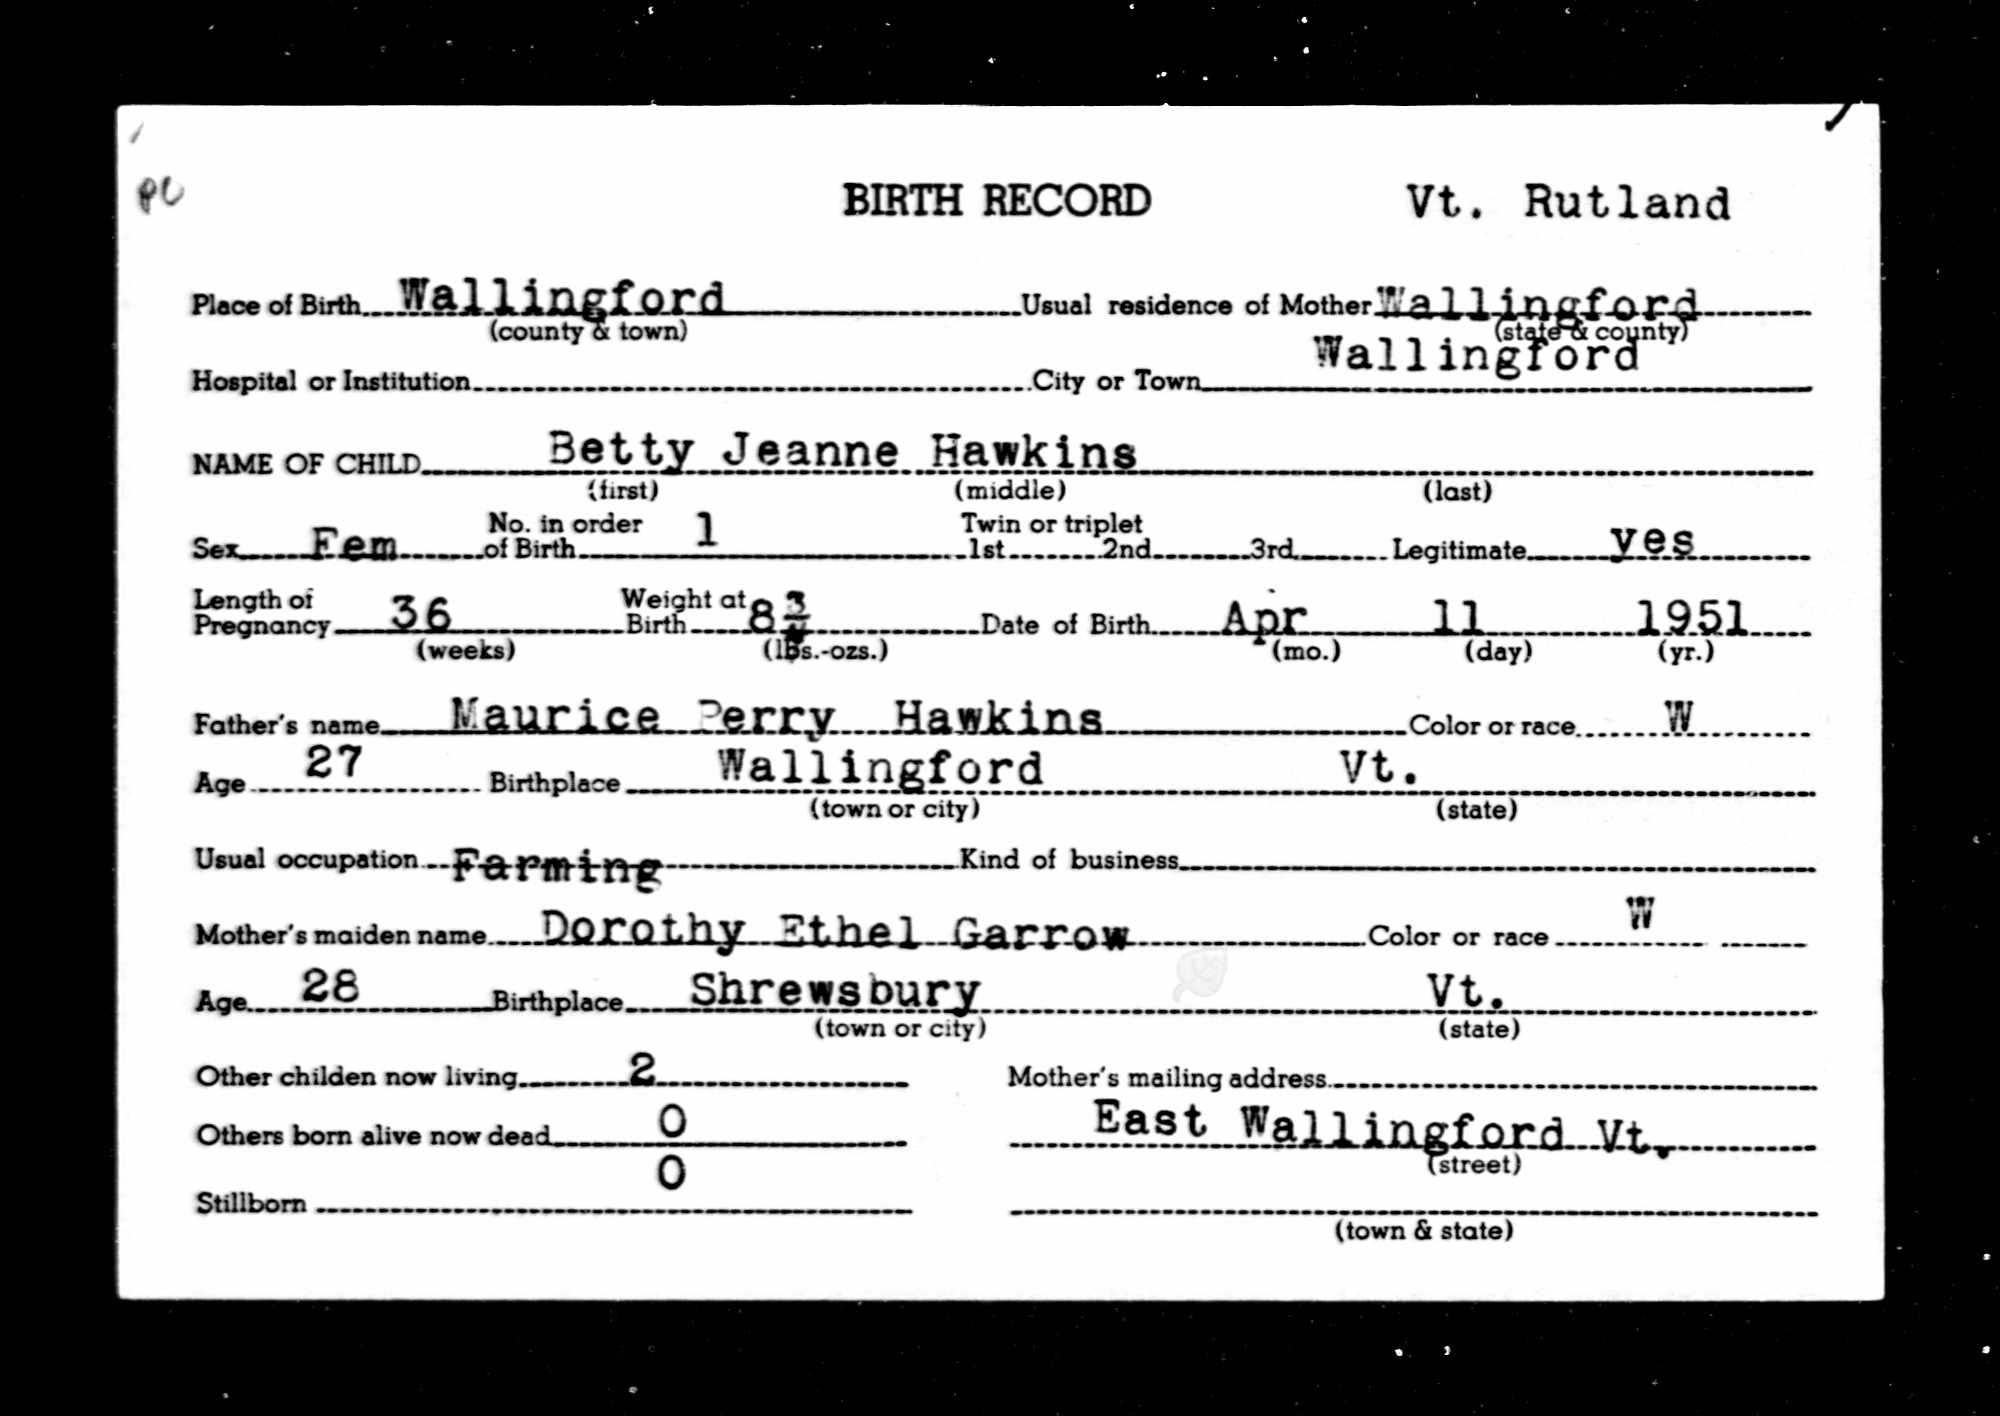 PC
BIRTH RECORD Vt. Rutland
Place of Birth Wallingford Usual residence of Mother Wallingford
(county & town) (state & county)
Hospital or Institution City or Town Wallingford
NAME OF CHILD Betty Jeanne Hawkins
(first) (middle) (last)
Sex Fem No. in order of Birth 1 Twin or triplet 1st 2nd 3rd Legitimate yes
Length of Pregnancy 36 Weight at Birth 8 3/4 Date of Birth Apr 11 1951
(weeks) (lbs.-ozs.) (mo.) (day) (yr.)
Father's name Maurice Perry Hawkins Color or race W
Age 27 Birthplace Wallingford Vt.
(town or city) (state)
Usual occupation Farming Kind of business
Mother's maiden name Dorothy Ethel Garrow Color or race W
Age 28 Birthplace Shrewsbury Vt.
(town or city) (state)
Other childen now living 2 Mother's mailing address
Others born alive now dead 0 East Wallingford Vt.
(street)
Stillborn 0
(town & state)